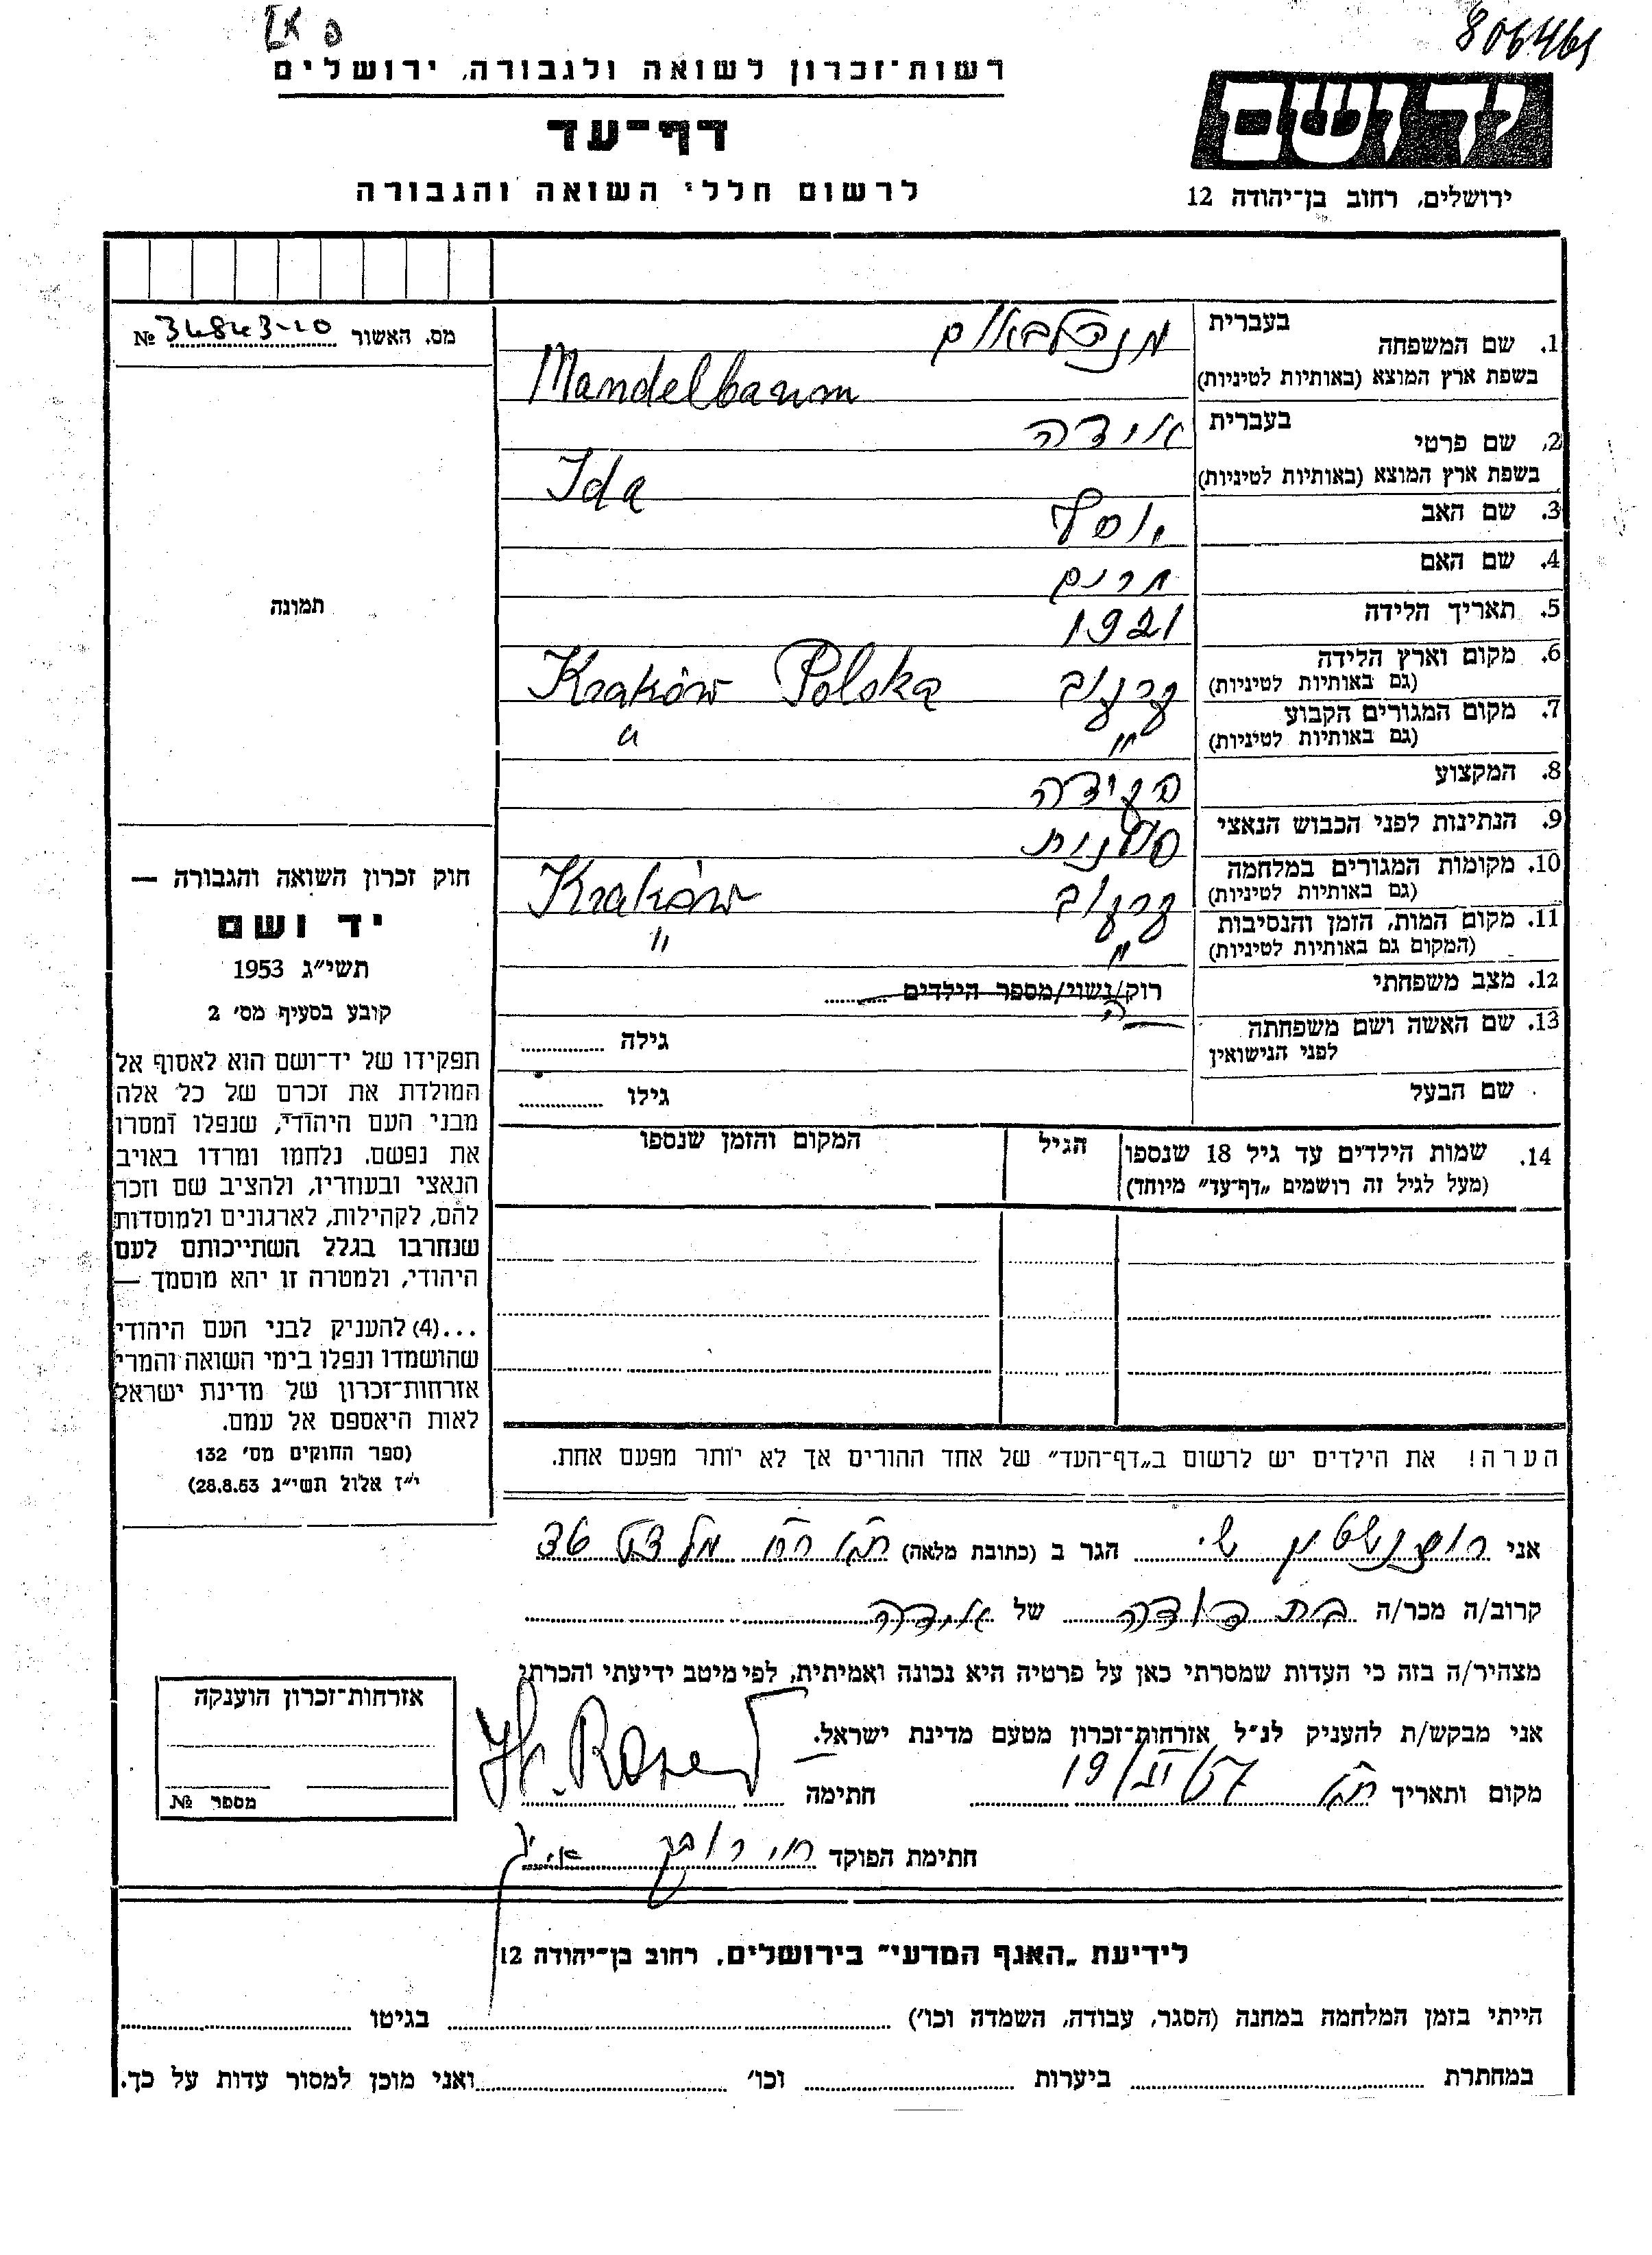 806461
רשות־זכרון לשואה ולגבורה, ירושלים
יד ושם
דף־עד
לרשום חללי השואה והגבורה
ירושלים, רחוב בן־יהודה 12
מס. האשור 34843-20 №
1. שם המשפחה בעברית מנדלבאום
בשפת ארץ המוצא (באותיות לטיניות) Mandelbaum
2. שם פרטי בעברית אידה
בשפת ארץ המוצא (באותיות לטיניות) Ida
3. שם האב יוסף
4. שם האם
5. תאריך הלידה 1921
6. מקום וארץ הלידה
(גם באותיות לטיניות) קרקוב Kraków Polska
7. מקום המגורים הקבוע
(גם באותיות לטיניות) " "
8. המקצוע פקידה
9. הנתינות לפני הכבוש הנאצי פולנית
10. מקומות המגורים במלחמה
(גם באותיות לטיניות) קרקוב Kraków
11. מקום המות, הזמן והנסיבות
(המקום גם באותיות לטיניות) " "
12. מצב משפחתי רוק/נשוי/מספר הילדים
ה
13. שם האשה ושם משפחתה
לפני הנישואין גילה
שם הבעל גילו
14. שמות הילדים עד גיל 18 שנספו הגיל המקום והזמן שנספו
(מעל לגיל זה רושמים „דף־עד" מיוחד)
תמונה
חוק זכרון השואה והגבורה —
יד ושם
תשי״ג 1953
קובע בסעיף מס׳ 2
תפקידו של יד־ושם הוא לאסוף אל
המולדת את זכרם של כל אלה
מבני העם היהודי, שנפלו ומסרו
את נפשם, נלחמו ומרדו באויב
הנאצי ובעוזריו, ולהציב שם וזכר
להם, לקהילות, לארגונים ולמוסדות
שנחרבו בגלל השתייכותם לעם
היהודי, ולמטרה זו יהא מוסמך —
...(4) להעניק לבני העם היהודי
שהושמדו ונפלו בימי השואה והמרי
אזרחות־זכרון של מדינת ישראל
לאות היאספם אל עמם.
(ספר החוקים מס׳ 132
י״ז אלול תשי״ג 28.8.53)
הערה! את הילדים יש לרשום ב„דף־העד" של אחד ההורים אך לא יותר מפעם אחת.
אני רוזנשטין הגר ב (כתובת מלאה) 36
קרוב/ה מכר/ה בת דודה של אידה
מצהיר/ה בזה כי העדות שמסרתי כאן על פרטיה היא נכונה ואמיתית, לפי מיטב ידיעתי והכרתי
אני מבקש/ת להעניק לנ״ל אזרחות־זכרון מטעם מדינת ישראל.
מקום ותאריך ת״א 19/VI/57 חתימה
חתימת הפוקד
אזרחות־זכרון הוענקה
מספר №
לידיעת „האגף המדעי" בירושלים, רחוב בן־יהודה 12
הייתי בזמן המלחמה במחנה (הסגר, עבודה, השמדה וכו׳) בגיטו
במחתרת ביערות וכו׳ ואני מוכן למסור עדות על כך.